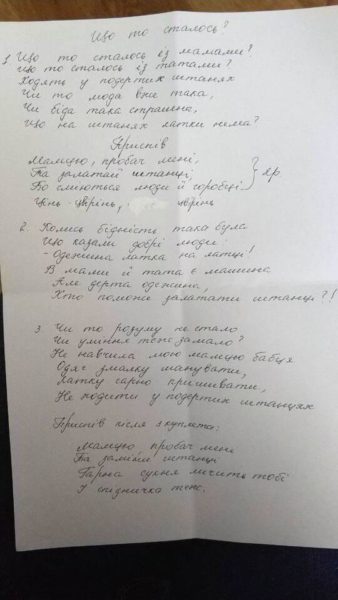 Що то сталось?
1. Що то сталось із мамами?
Що то сталось із татами?
Ходять у подертих штанях
Чи то мода вже така,
Чи біда така страшна,
Що на штанях латки нема?
Приспів
Мамцю, пробач мені,
Та залатай штанці,
Бо сміються люди й горобці
Цінь-цвірінь, цвірінь
2. Колись бідність така була
Що казали добрі люди:
- Одежина латка на латці!
В мами й тата є машина
Але дерта одежина,
Хто поможе залатати штанці?!
3. Чи то розуму не стало
Чи уміння теж замало?
Не навчила мою мамцю бабця
Одяг змалку шанувати,
Латку гарно пришивати,
Не ходити у подертих штанцях
Приспів після 3 куплета:
Мамцю пробач мені
Та заміни штанці
Гарна сукня личить тобі
І спідничка теж.